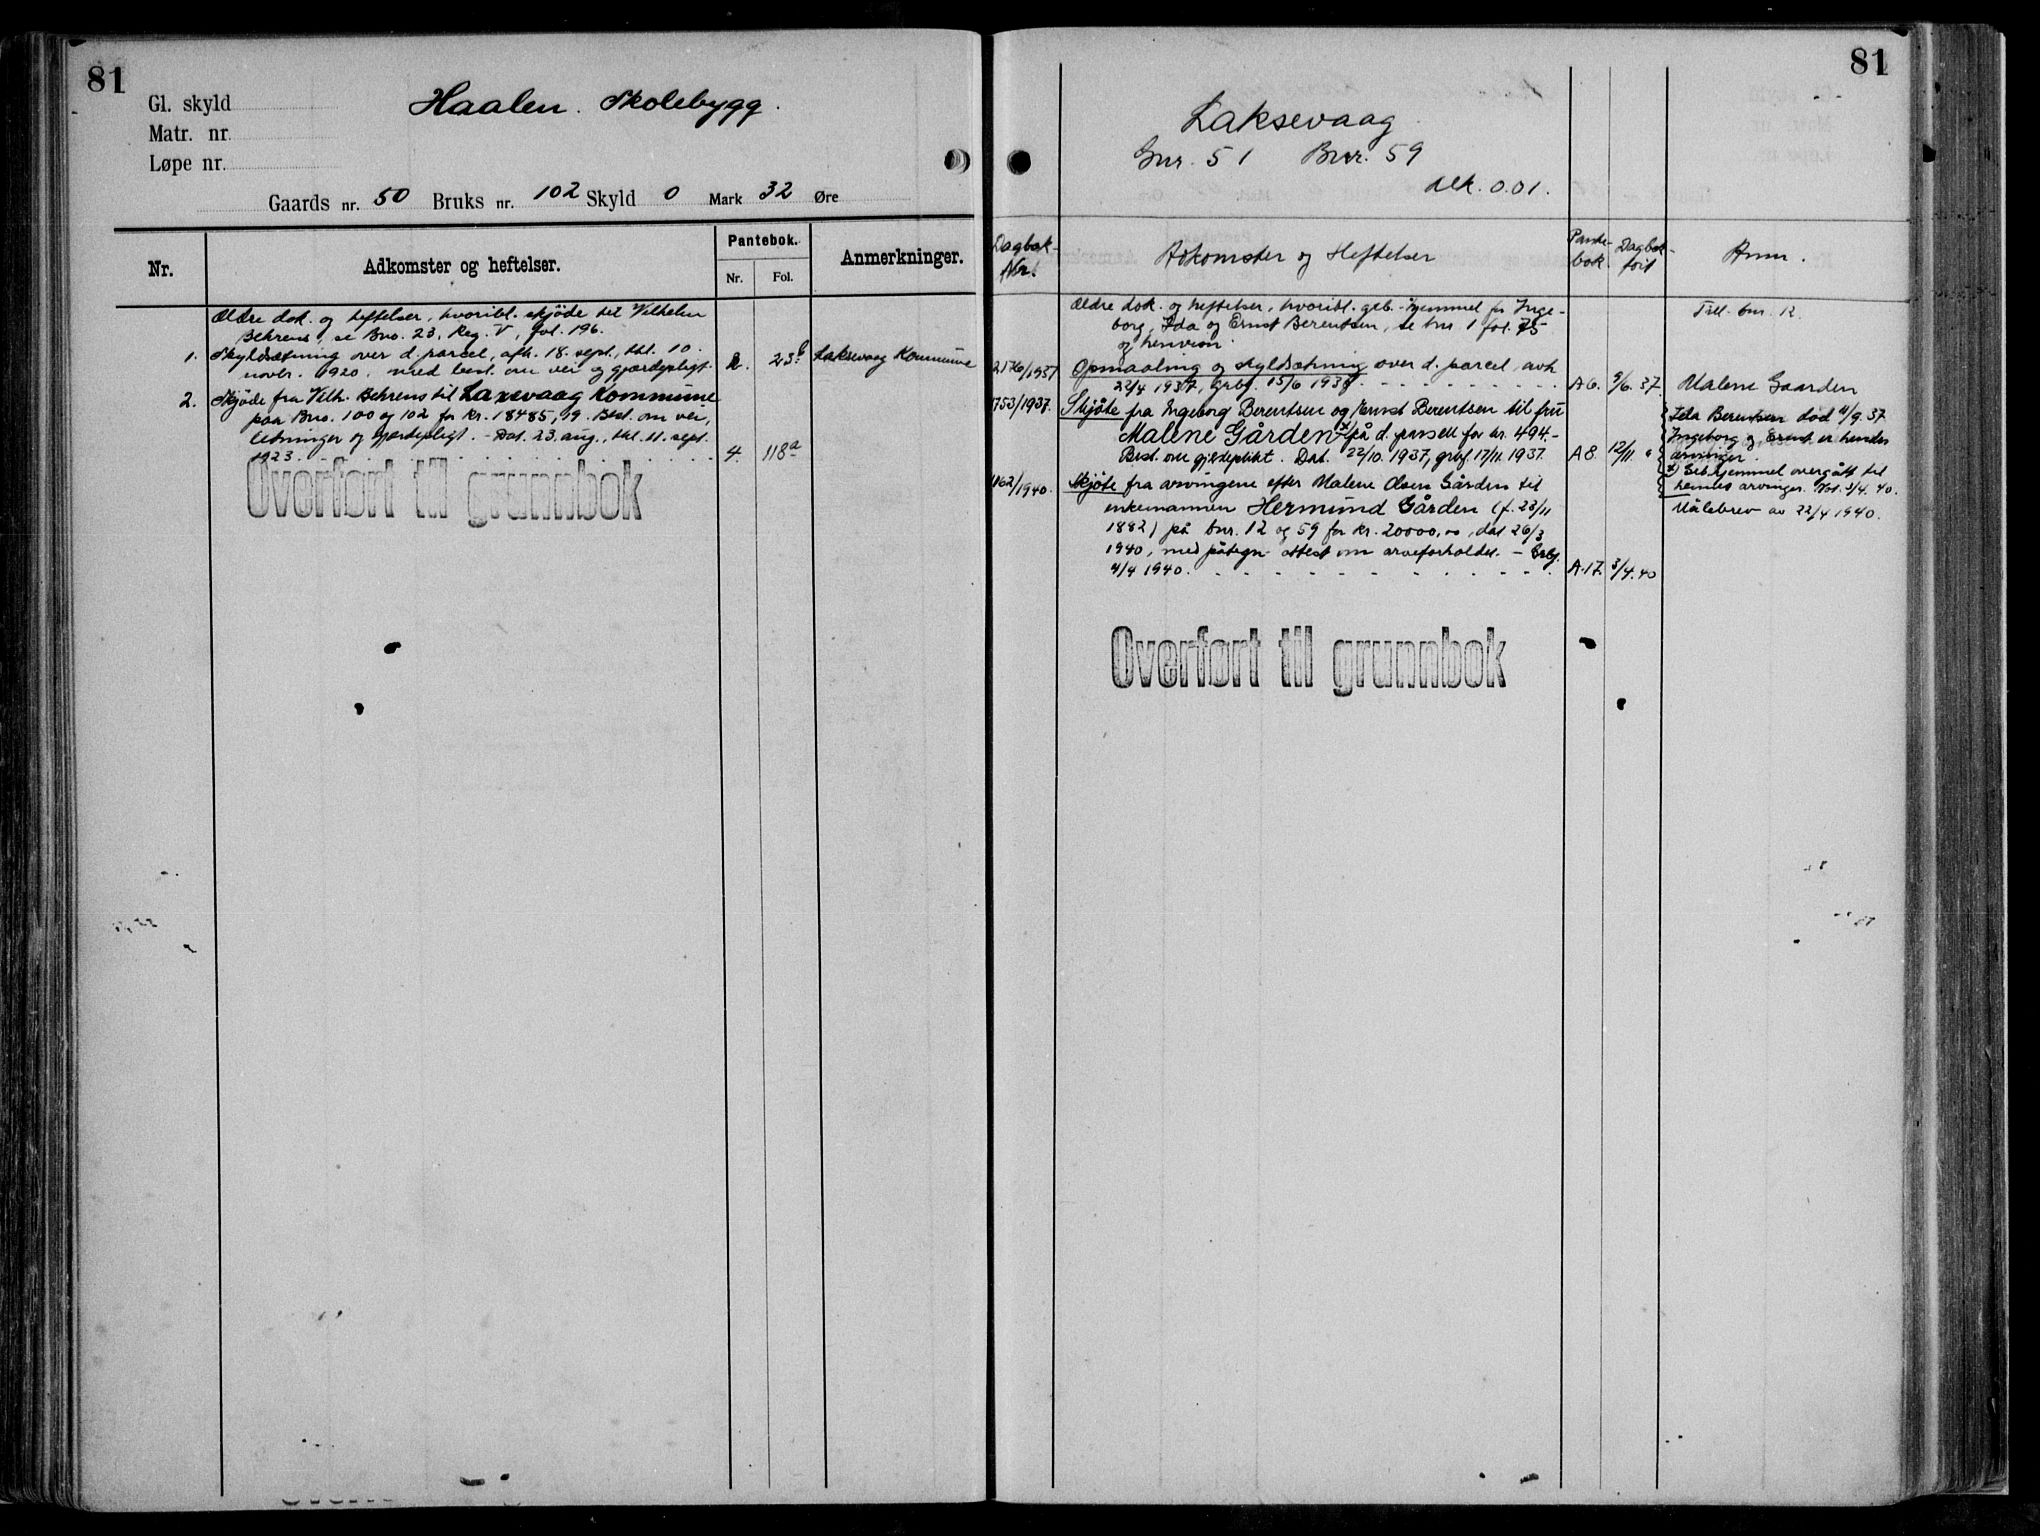 81
Gl. skyld
Haalen. Skolebygg.
Matr. nr.
Løpe nr.
Gaards nr. 50 Bruks nr. 102 Skyld 0 Mark 32 Øre
Nr.
Adkomster og heftelser.
Pantebok.
Nr.
Fol.
Anmerkninger.
Ældre dok. og heftelser, hvoribl. skjøde til Vilhelm
Behrens, se Bno. 23, Reg. V, fol. 196.
1. Skyldsætning over d. parcel, afh. 18. sept., thl. 10. Laksevaag Kommune
novbr. 1920. med best. om vei og gjærdepligt. 2. 23b
2. Skjøde fra Vilh. Behrens til Laxevaag Kommune
paa Bno. 100 og 102 for kr. 18485,19. Best. om vei,
ledninger og gjærdepligt. - Dat. 23. aug., thl. 11. sept.
1923. 4. 118a
Overført til grunnbok
81
Laksevaag
Gnr. 51 Bnr. 59
0.01.
Dagbok
Adkomster og Heftelser
Pante-
bok.
Dagbok-
ført
Anm.
Ældre dok. og heftelser, hvoribl. geb.-hjemmel for Inge-
borg, Ida og Ernst Berentsen, se bnr 1 fol. 75
og henvisn.
Till. bnr. 12.
2176/1937 Opmaaling og skyldsætning over d. parcel, avh.
22/4 1937, grbf. 15/6 1937 A6. 9/6. 37. Malene Gaarden
1753/1937. Skjøte fra Ingeborg Berentsen og Ernst Berentsen til fru
Malene Gården x) på d. parsell for kr. 494.-
Best. om gjerdeplikt. Dat. 22/10. 1937, grbf 17/11. 1937. A8. 12/11. "
Ida Berentsen død 11/9. 37.
Ingeborg og Ernst er hendes
arvinger.
x) Geb. hjemmel overgått til
hennes arvinger. Not. 3/4. 40.
1162/1940. Skjøte fra arvingene efter Malene Olsen Gården til
enkemannen Hermund Gården (f. 23/11
1882) på bnr. 12 og 59 for kr. 20000,00, dat 26/3
1940, med påtegn. attest om arveforholdet. - Grbf.
4/4 1940. A.17. 3/4. 40
Målebrev av 22/4 1940.
Overført til grunnbok